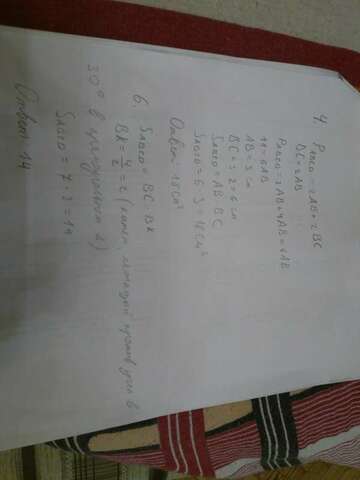 4. PABCD = 2AB + 2BC
BC = 2AB
PABCD = 2AB + 4AB = 6AB
AB = 3 см
BC = 3 · 2 = 6 см
SABCD = AB · BC
SABCD = 6 · 3 = 18 см²
Ответ: 18 см²
6. SABCD = BC · BK
BK = 4/2 = 2 (катет, лежащий против угла в
30° в
SABCD = 7 · 2 = 14
Ответ 14